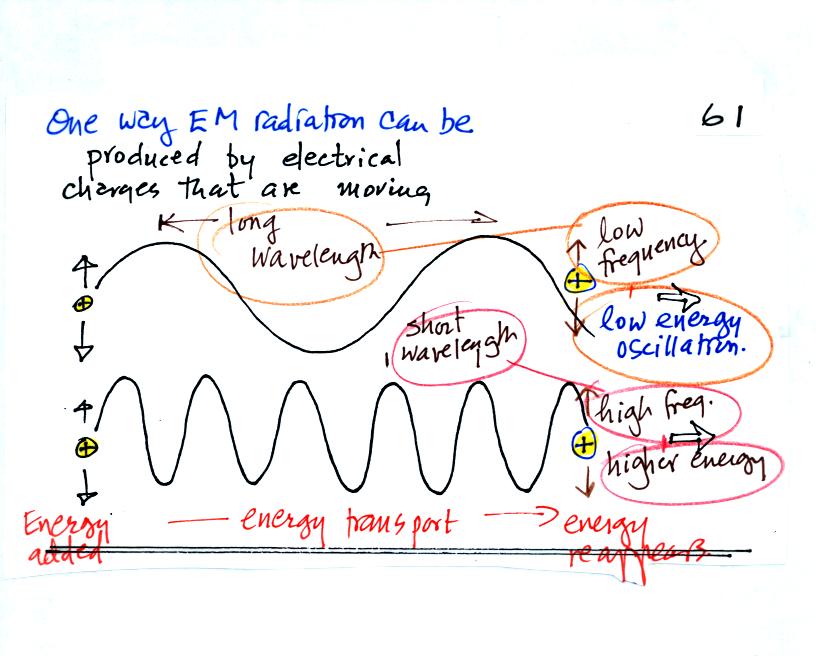 One way EM radiation can be
61
produced by electrical
charges that are moving
long
wavelength
low
frequency
low energy
oscillation.
short
wavelength
high freq.
higher energy
Energy
added
energy transport
energy
reappears.